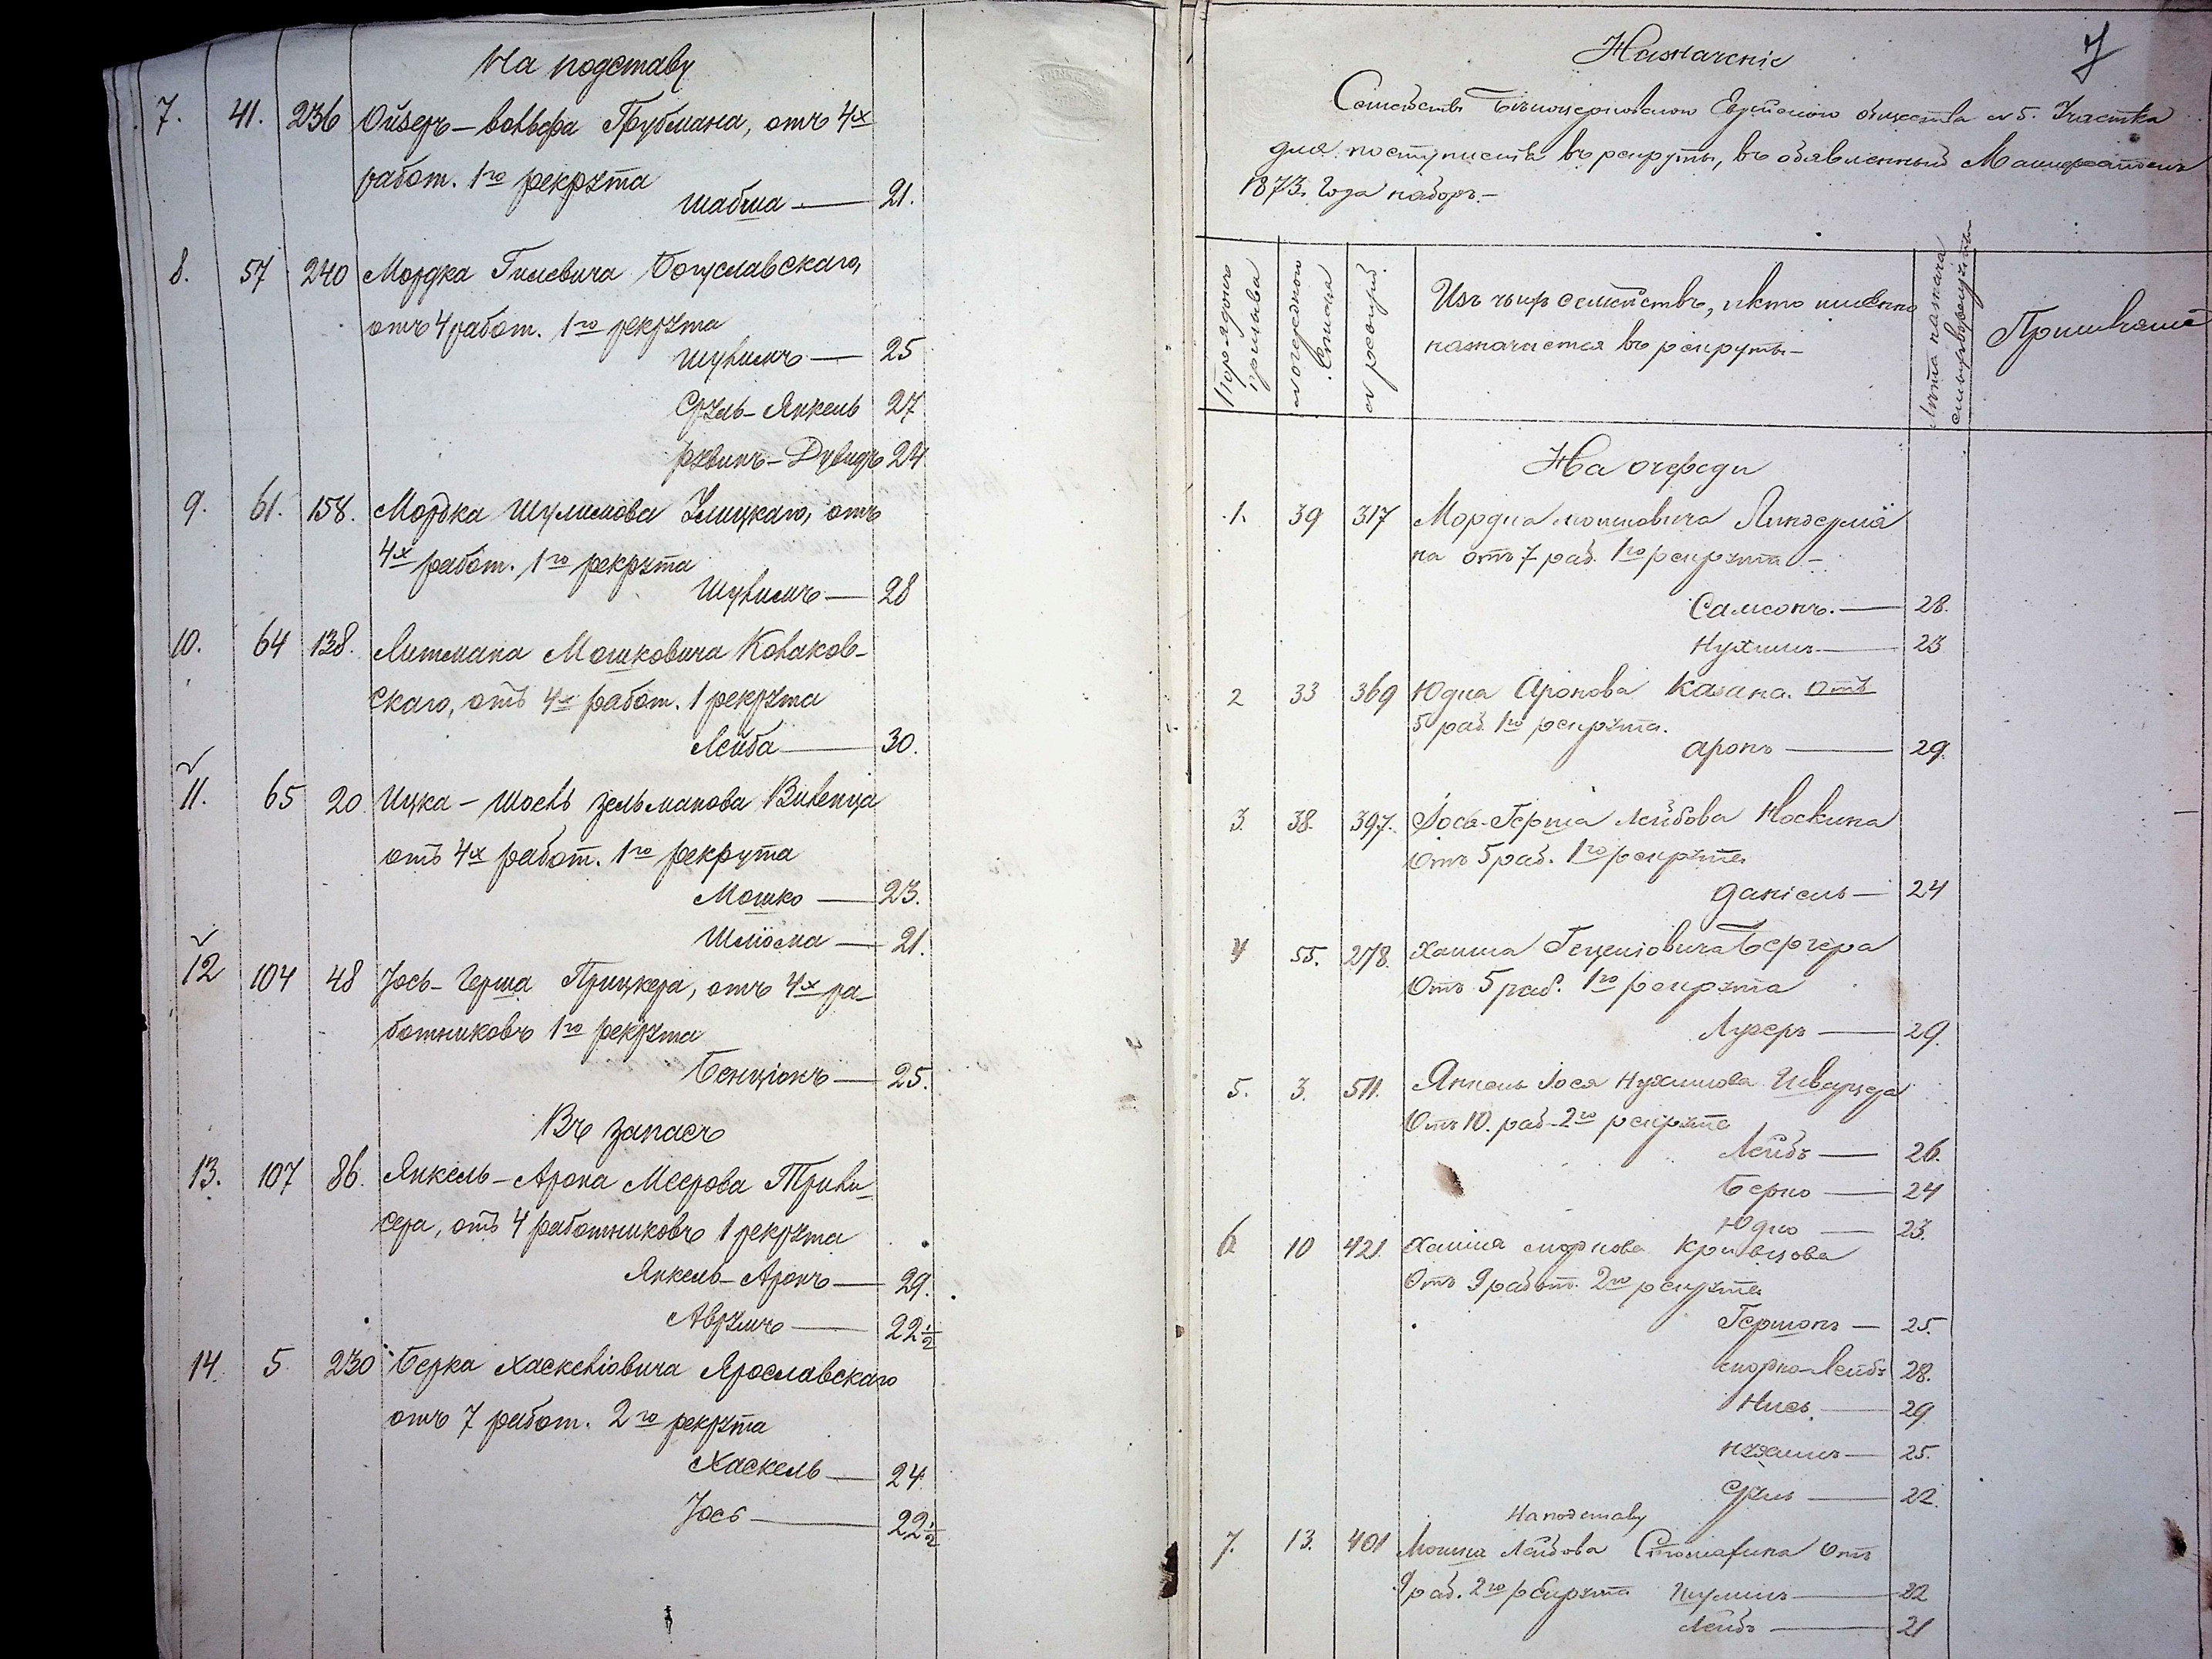 На подставу
7. 41. 236 Ойзеръ-Вольфа Грубмана, отъ 4х
работ. 1го рекрута
Шабша — 21.
8. 57 240 Мордка Гилевича Богуславскаго,
отъ 4 работ. 1го рекрута
Шулимъ — 25
Сруль-Янкель 27
Рувинъ-Дувидъ 24
9. 61. 158. Мордка Шулимова Улицкаго, отъ
4х работ. 1го рекрута
Шулимъ — 28
10. 64 138. Литмана Мошковича Колаков-
скаго, отъ 4х работ. 1 рекрута
Лейба — 30.
11. 65 20 Ицка-Шоель Зельманова Виленца
отъ 4х работ. 1го рекрута
Мошко — 23.
Шлиома — 21.
12 104 48 Іось-Герша Прицкера, отъ 4х ра-
ботниковъ 1го рекрута
Бенціонъ — 25.
Въ запасъ
13. 107 86. Янкель-Арона Меерова
отъ 4 работниковъ 1 рекрута
Янкель-Аронъ — 29.
Аврумъ — 22½
14. 5 230 Берка Хаскеліовича Ярославскаго
отъ 7 работ. 2го рекрута
Хаскель — 24
Іось — 22½
7
Назначеніе
Семействъ Бѣлоцерковскаго Еврейскаго общества № 5. Участка
для поступленія въ рекруты, въ объявленный Манифестомъ
1873. Года наборъ.—
№ очереднаго списка
№ ревизіи
Изъ чьихъ семействъ, и кто именно
назначается въ рекруты—
Лѣта
Примѣчаніе
На очереди
1. 39 317 Мордка Мошковича Линдерма
на отъ 7 раб. 1го рекрута —
Самсонъ. — 28.
Нухимъ — 23
2 33 369 Юдка Аронова Казана. Отъ
5 раб. 1го рекрута.
Аронъ — 29.
3. 38. 397. Іось-Герша Лейбова Носкина
Отъ 5 раб. 1го рекрута
Даніель — 24
4 55. 278. Хаима Бергера
Отъ 5 раб. 1го рекрута
Лузеръ — 29.
5. 3. 511. Янкель Іося Нухимова Шварцда
Отъ 10. раб. 2го рекрута
Лейбъ — 26.
Берко — 24
Юдко — 23.
6 10 421 Хаима Моркова Кривцова
Отъ 9 работ. 2го рекрута
Гершонъ — 25.
Морко-Лейбъ 28.
Нись — 29
Нухимъ — 25.
Сруль — 22.
На подставу
7. 13. 401 Мошка Лейбова отъ
9 раб. 2го рекрута Шулимъ — 22
Лейбъ — 21